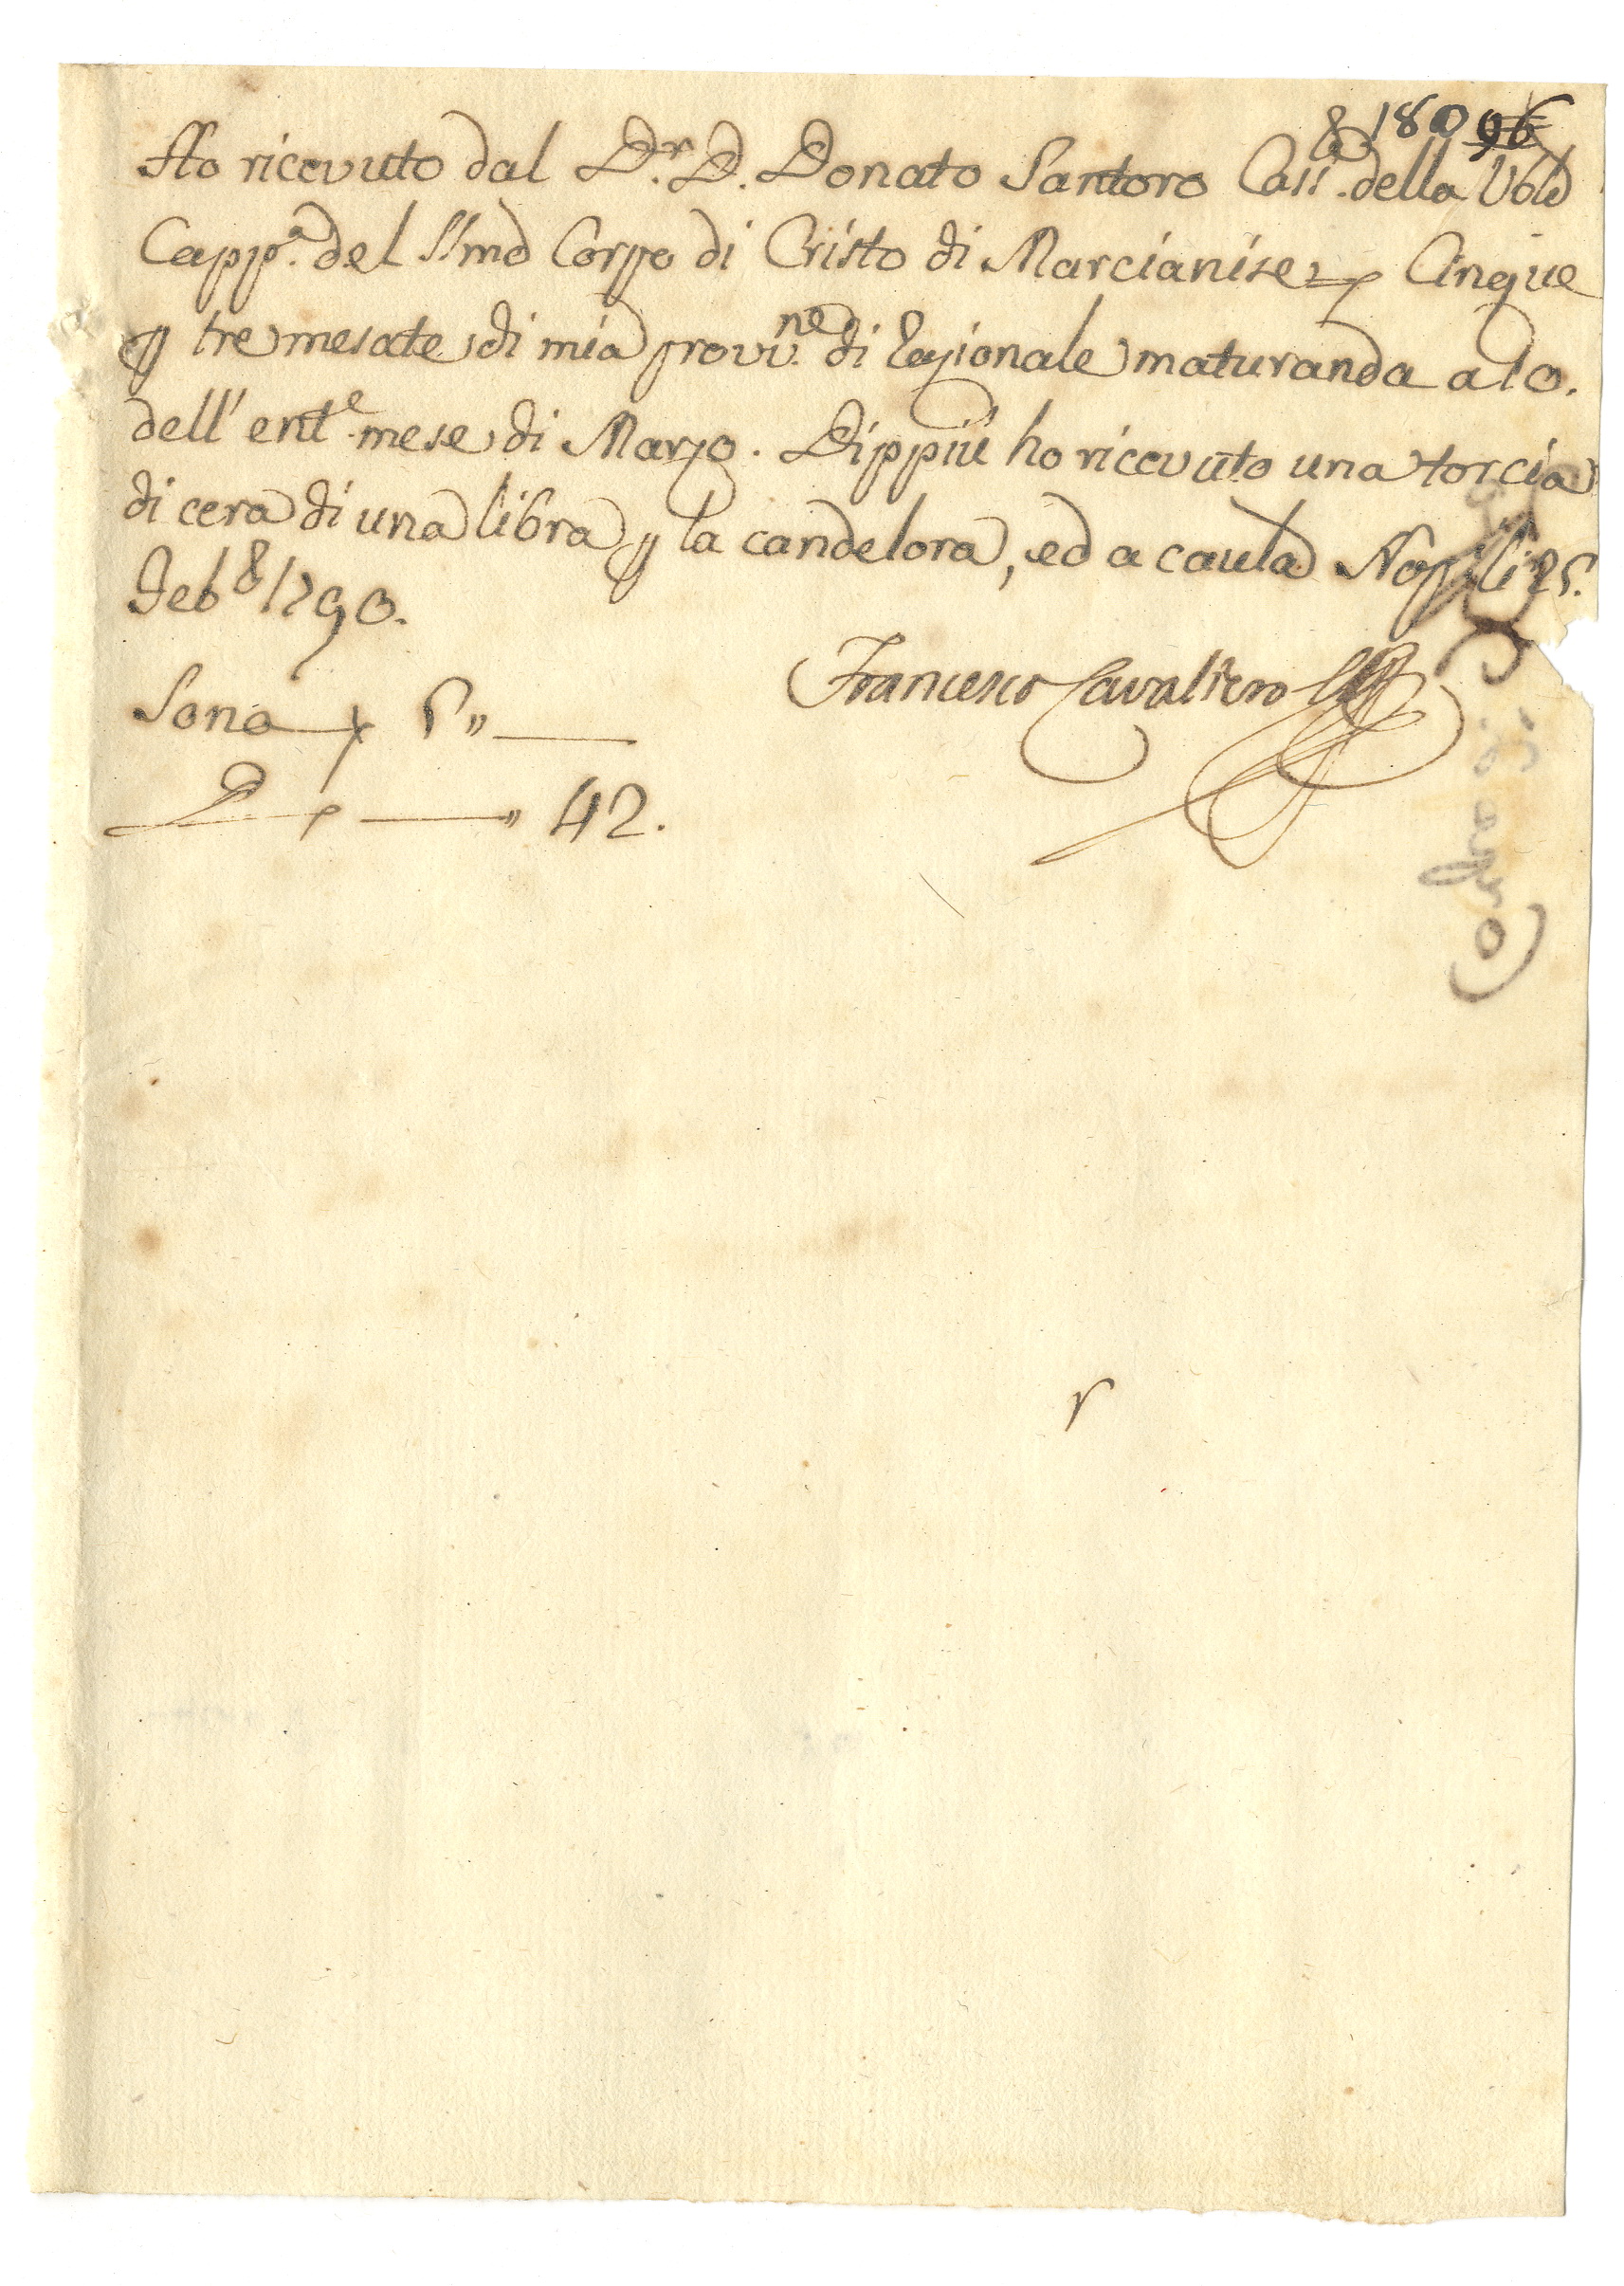 180 96
Ho ricevuto dal D.r D. Donato Santoro Cass. della Vble
Capp.a del SSmo Corpo di Cristo di Marcianise Cinque
p tre mesate di mia provi.ne di Razionale maturanda a
dell' ent.e mese di Marzo. Dippiù ho ricevuto una torcia
di cera di una libra p la candelora, ed a caula Napoli 25.
Feb.o 1790.
Francesco Cavaliero
Sono 5"
" 42.